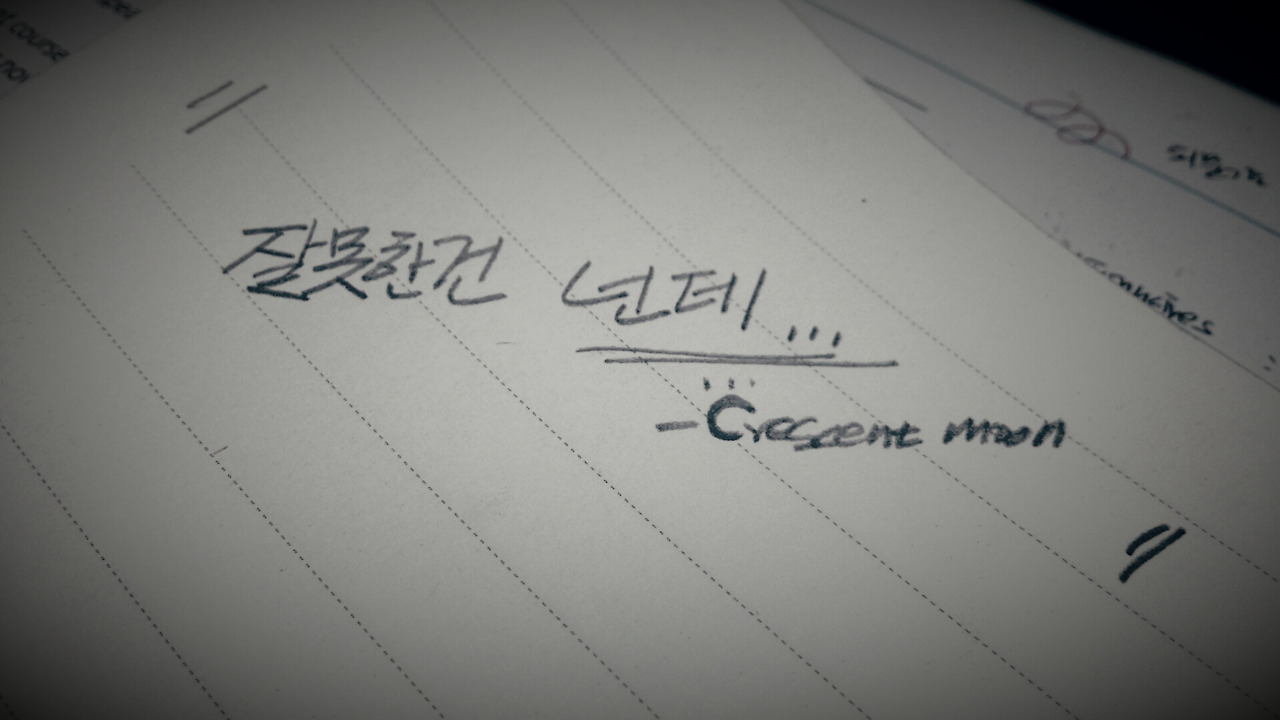 "
잘못한건 넌데...
- Crescent moon
"
course